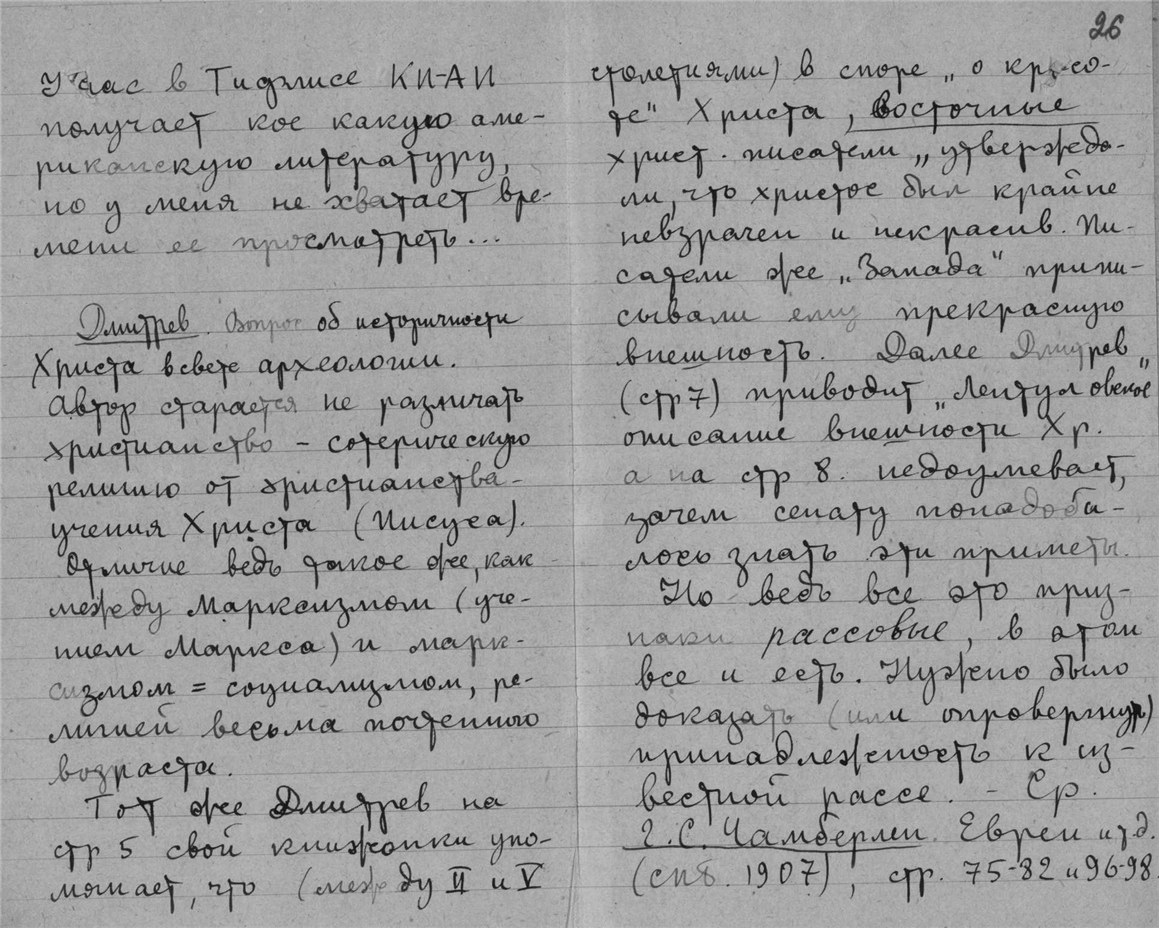 26
У нас в Тифлисе КИ-АИ
получает кое какую аме-
риканскую литературу,
но у меня не хватает вре-
мени ее просмотреть...
Дмитрев. Вопрос об историчности
Христа в свете археологии.
Автор старается не различать
христианство - сотерическую
религию от христианства -
учения Христа (Иисуса).
Отличие ведь такое же, как
между Марксизмом (уче-
нием Маркса) и марк-
сизмом = социализмом, ре-
лигией весьма почтенного
возраста.
Тот же Дмитрев на
стр 5 свой книжонки упо-
мянает, что (между II и V
столетиями) в споре „о красо-
те" Христа, восточные
христ. писатели „утвержда-
ли, что христос был крайне
невзрачен и некрасив. Пи-
сатели же „Запада" припи-
сывали ему прекрасную
внешность. Далее Дмитрев„
(стр 7) приводит „Лентуловское
описание внешности Хр.
а на стр 8. недоумевает,
зачем сенату понадоби-
лось знать эти приметы.
Но ведь все это приз-
наки рассовые, в этом
все и есть. Нужно было
доказать (или опровергнуть)
принадлежность к из-
вестной рассе. - Ср.
Г.С. Чамберлен Евреи и т.д.
(спб. 1907), стр. 75-82 и 96-98.